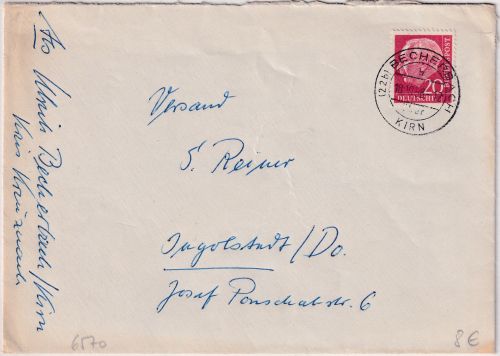 Abs Ulrich Becherbach/Kirn
Kreis Kreuznach
(22b) BECHERBACH
KIRN
POST
20
DEUTSCHE
Versand
S. Reiner
Ingolstadt/Do.
Josef Ponschabstr. 6
6570
8 €